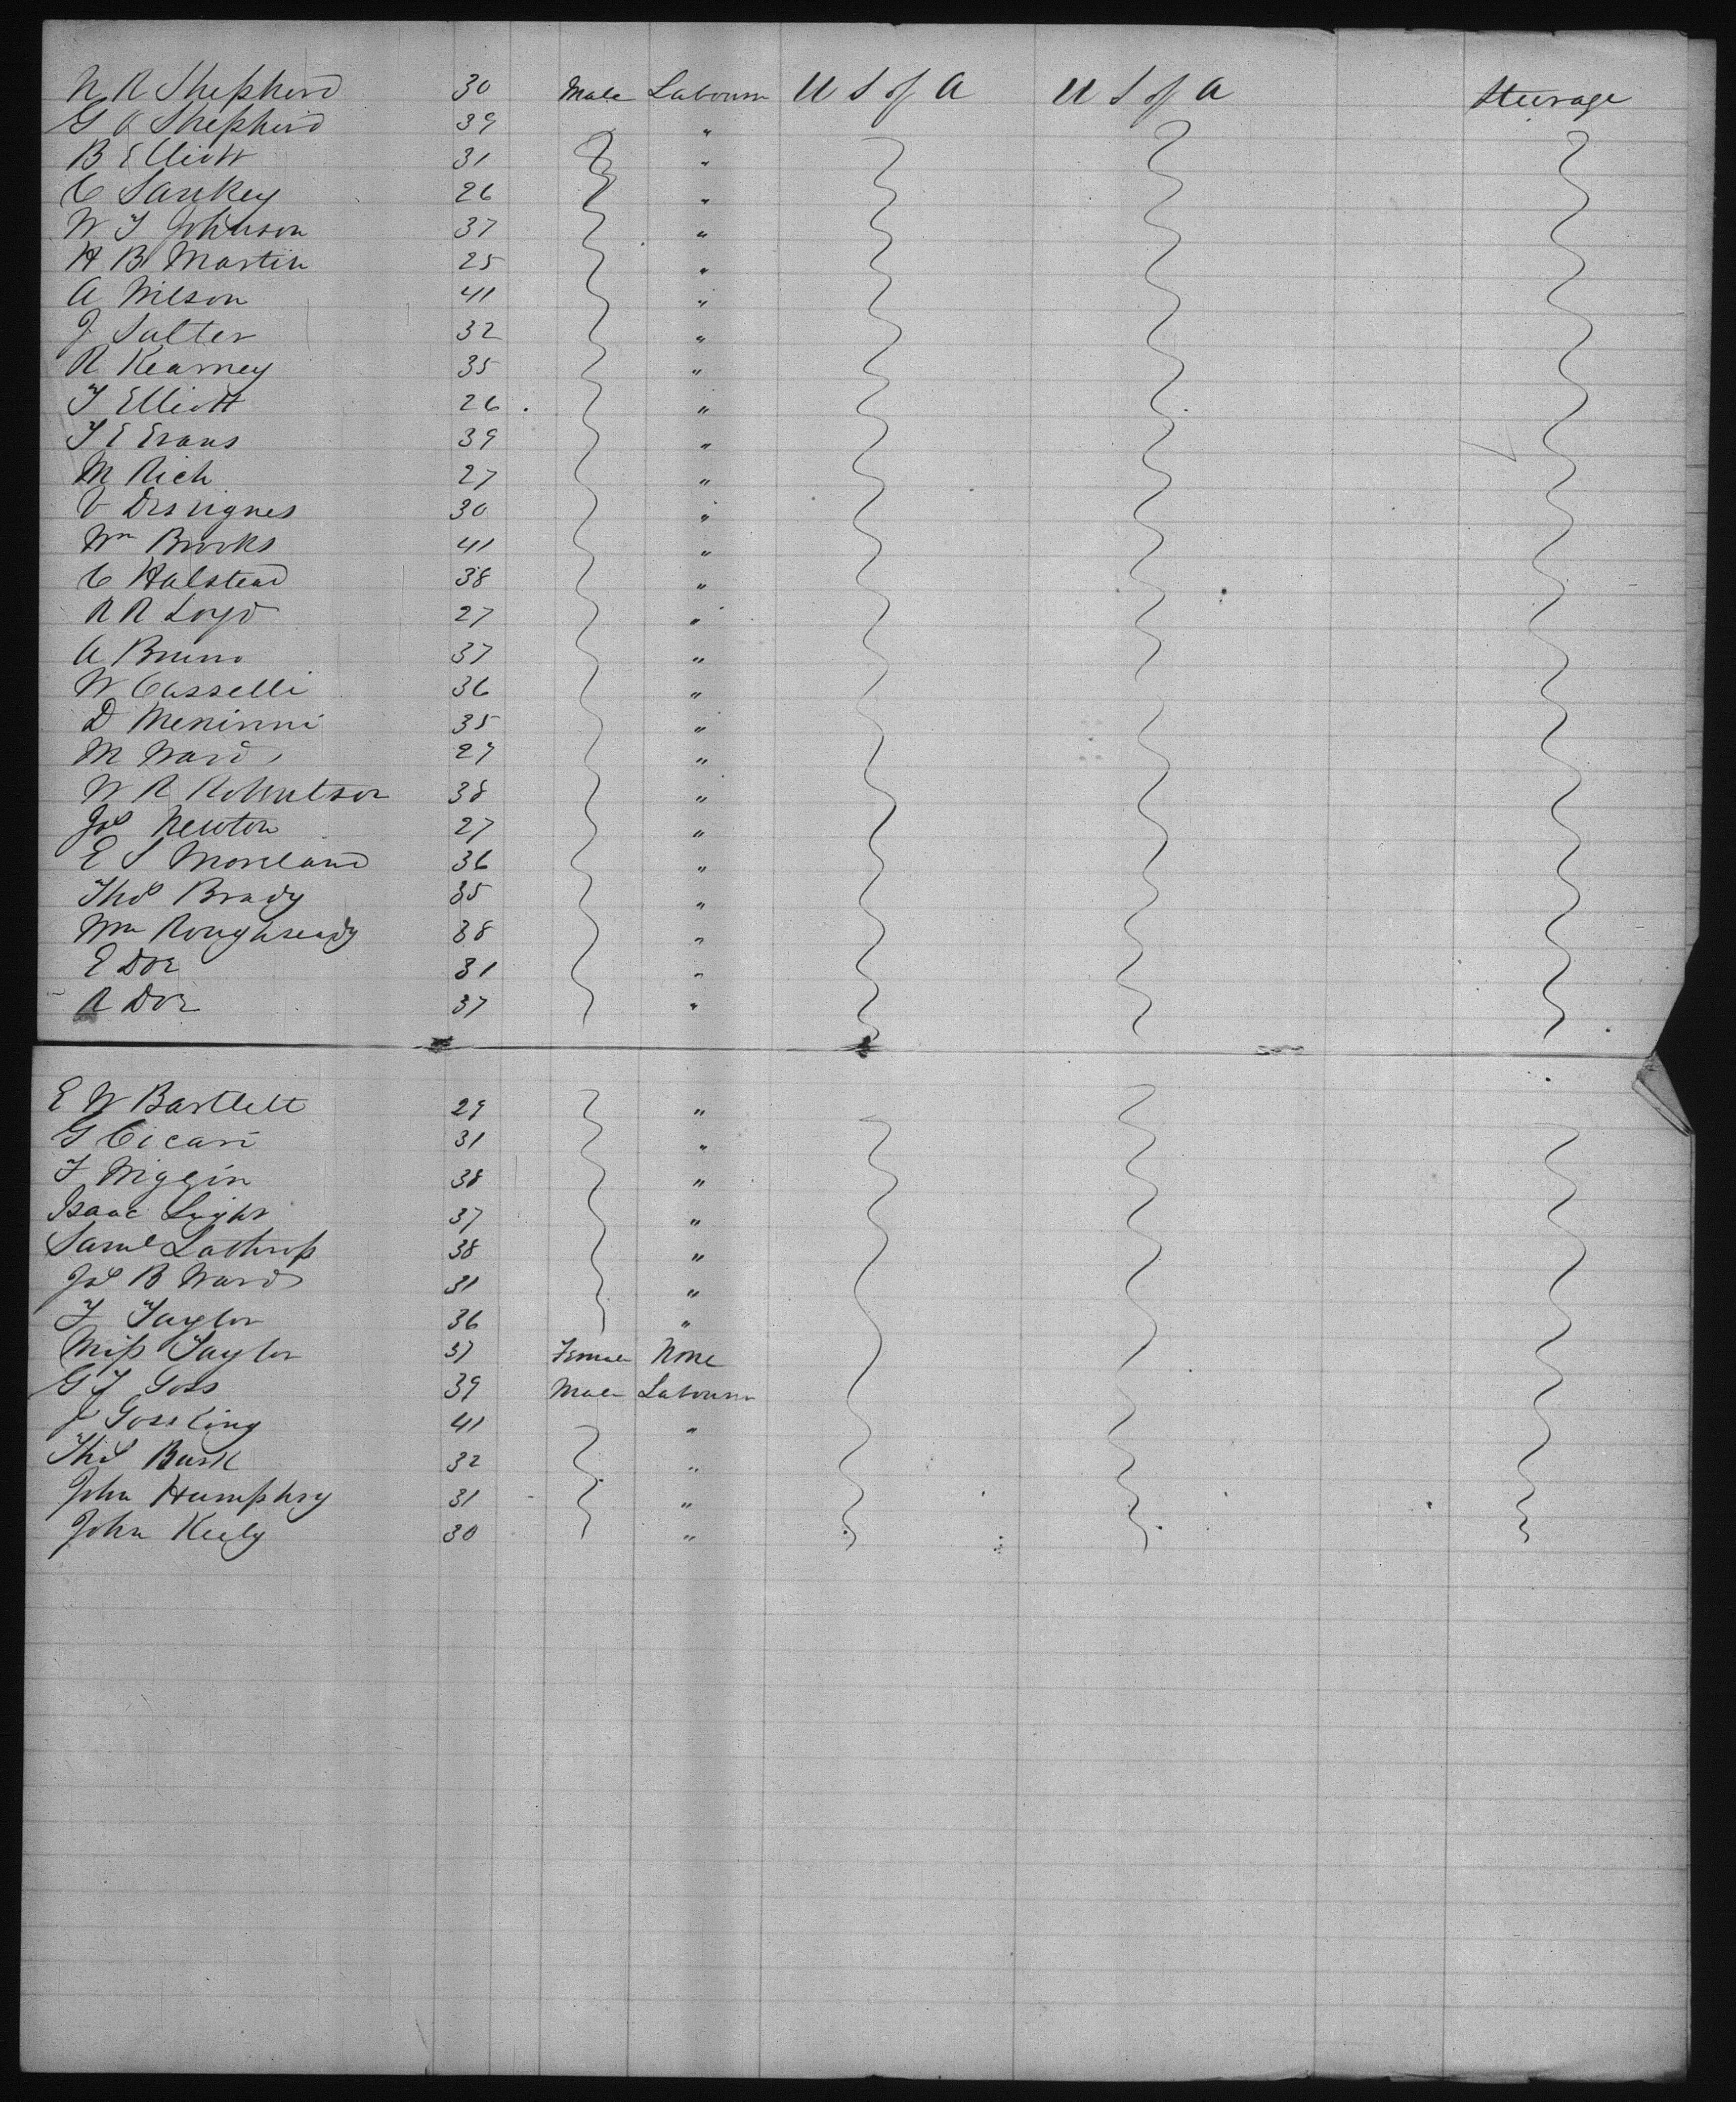 N R Shepherd 30 Male Labourer U S of A U S of A Steerage
G A Shepherd 39 "
B Elliott 31 "
C Sankey 26 "
W T Johnson 37 "
H B Martin 25 "
A Wilson 41 "
J Salter 32 "
R Kearney 35 "
T Elliott 26 "
T E Evans 39 "
M Rich 27 "
V Desvignes 30 "
Wm Brooks 41 "
C Halstead 38 "
R R Loyd 27 "
A Bruno 37 "
W Casselli 36 "
D Meninni 35 "
M Ward 29 "
W R Robertson 38 "
Jos Newton 27 "
E S Moreland 36 "
Thos Brady 35 "
Wm Roughready 38 "
E Doe 31 "
R Doe 37 "
E W Bartlett 29 "
G Cicari 31 "
F Wiggin 38 "
Isaac Light 37 "
Saml Lathrop 38 "
Jos B Ward 31 "
F Taylor 36 "
Miss Taylor 37 Female None
G T Goss 39 Male Labourer
J Gossling 41 "
Thos Burk 32 "
John Humphry 31 "
John Keely 30 "